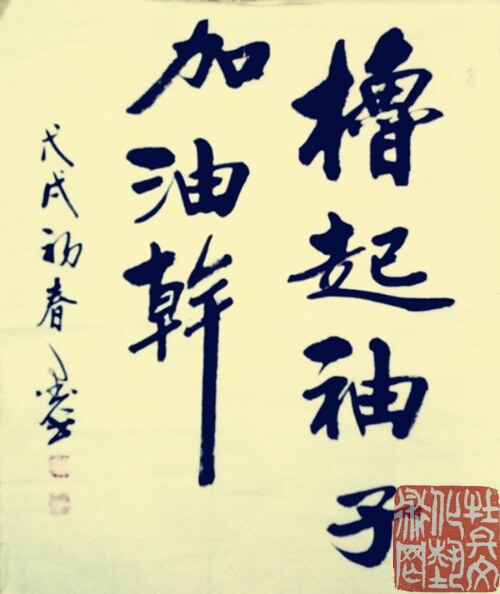 櫓起袖子
加油幹
戊戌初春